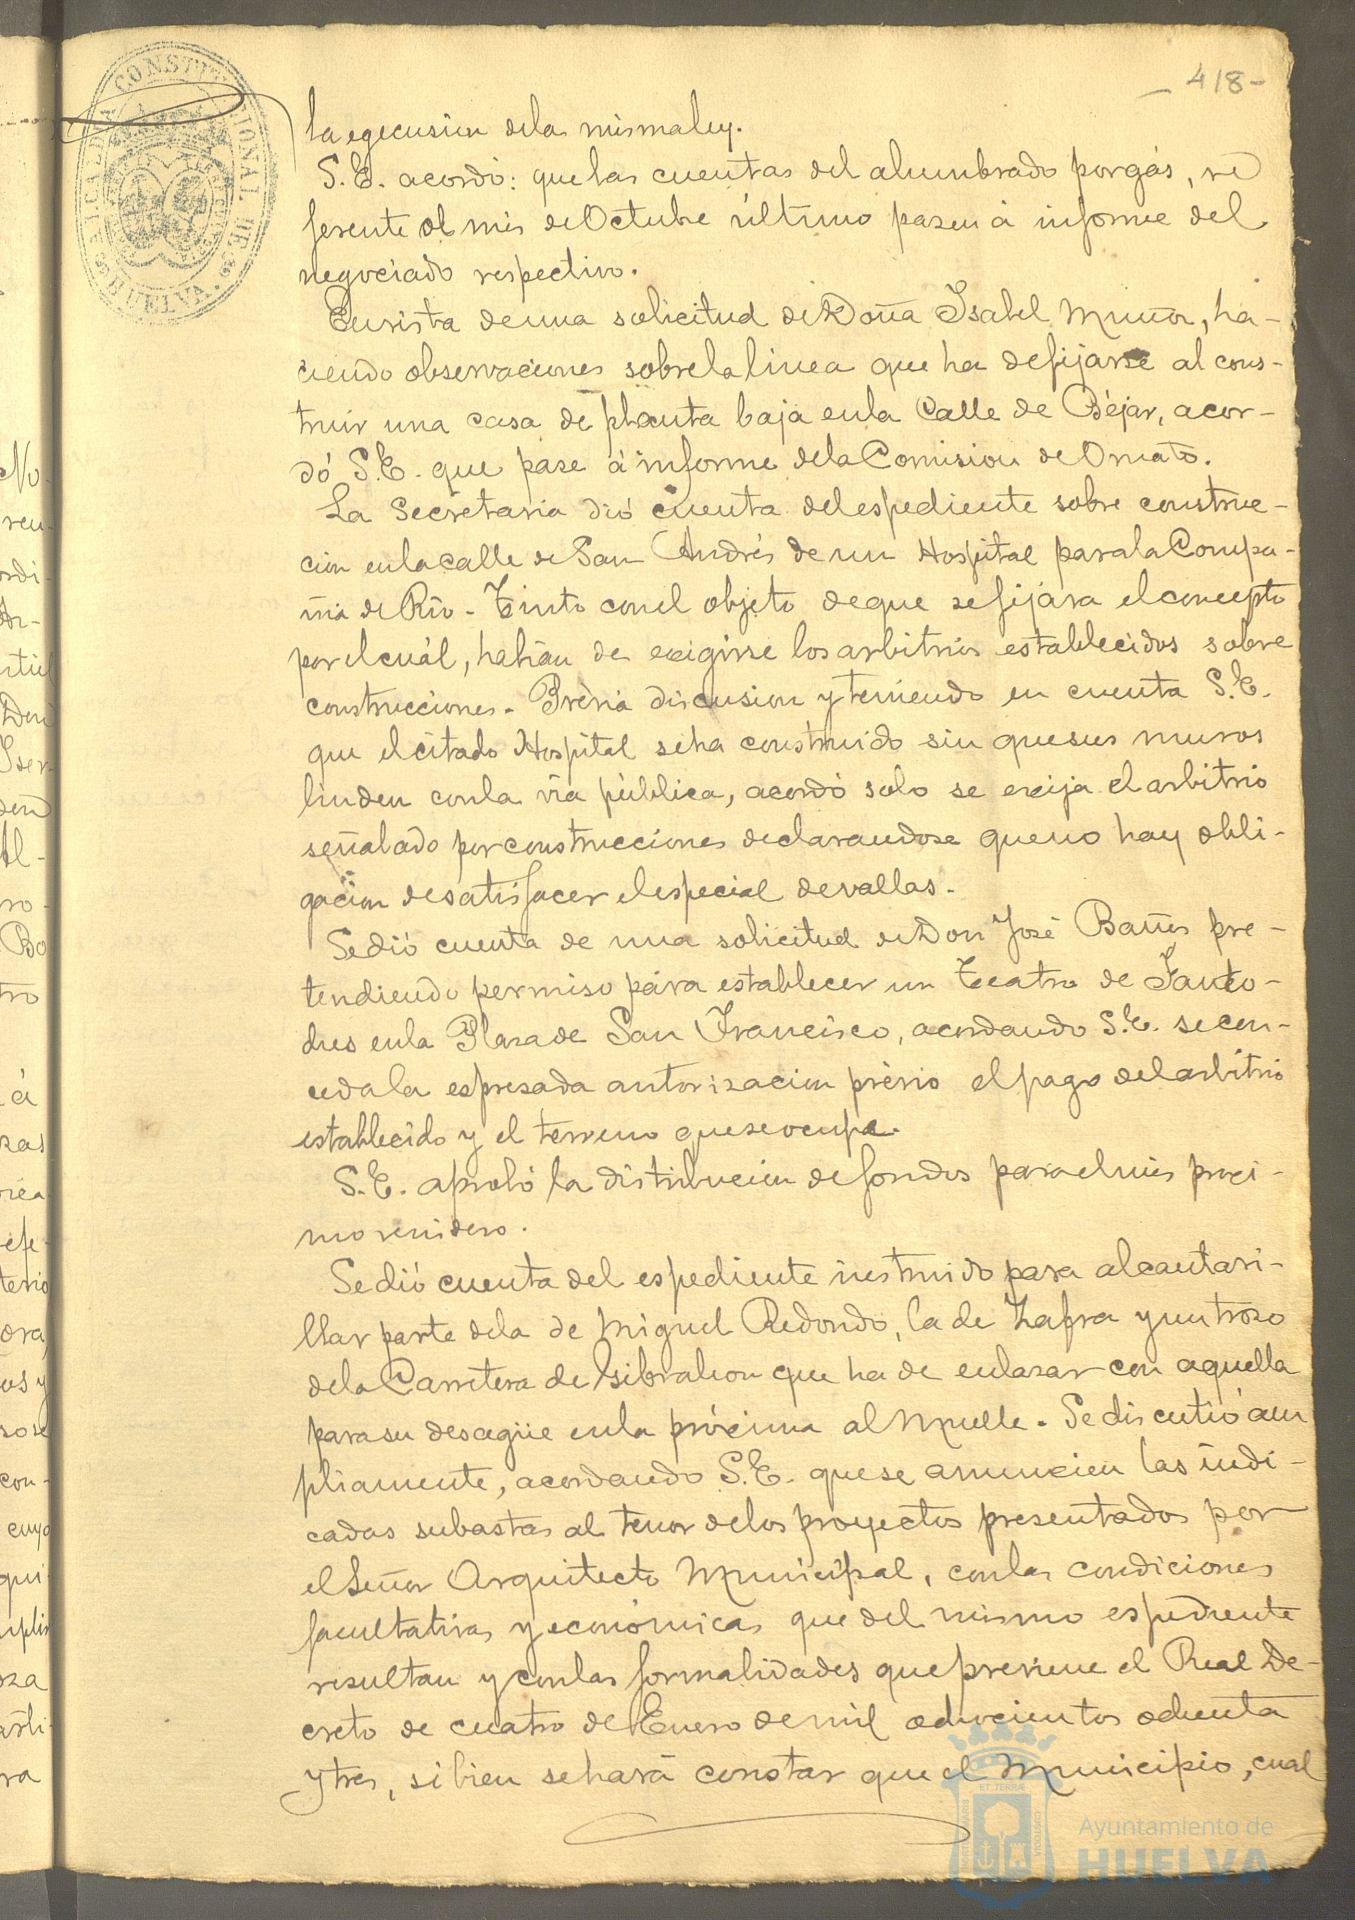 418-
ALCALDIA CONSTITUCIONAL DE HUELVA.
la egecusion dela misma ley.
S.E. acordó: que las cuentas del alumbrado por gás, re
ferente al mes de Octubre último pasen á informe del
negociado respectivo.
En vista de una solicitud de Doña Isabel Muñoz, ha-
ciendo observaciones sobre la linea que ha de fijarse al cons-
truir una casa de planta baja en la Calle de Béjar, acor-
dó S.E. que pase á informe de la Comision de Ornato.
La Secretaria dió cuenta del espediente sobre construc-
cion en la calle de San Andrés de un Hospital para la Compa-
ñia de Rio-Tinto con el objeto de que se fijára el concepto
por el cuál, habian de exigirse los arbitrios establecidos sobre
construcciones. Prévia discusion y teniendo en cuenta S.E.
que el citado Hospital se ha construido sin que sus muros
linden con la via pública, acordó solo se exija el arbitrio
señalado por construcciones declarandose que no hay obli-
gacion de satisfacer el especial de vallas.
Se dió cuenta de una solicitud de Don José Bañes pre-
tendiendo permiso pára establecer un Teatro de Fanto-
ches en la Plaza de San Francisco, acordando S.E. se con-
ceda la espresada autorizacion prévio el pago del arbitrio
establecido y el terreno que se ocupe.
S.E. aprobó la distribucion de fondos para el mes proxi-
mo venidero.
Se dió cuenta del espediente instruido para alcantari-
llar parte dela de Miguel Redondo, la de Zafra y un trozo
de la Carretera de Gibraleon que ha de enlazar con aquella
para su desagüe en la próxima al Muelle. Se discutió am
pliamente, acordando S.E. que se anuncien las indi-
cadas subastas al tenor de los proyectos presentados por
el Señor Arquitecto Municipal, con las condiciones
facultativas y económicas que del mismo espediente
resultan y con las formalidades que previene el Real De-
creto de cuatro de Enero de mil ochocientos ochenta
y tres, si bien se hará constar que el Municipio, cual
Ayuntamiento de
HUELVA